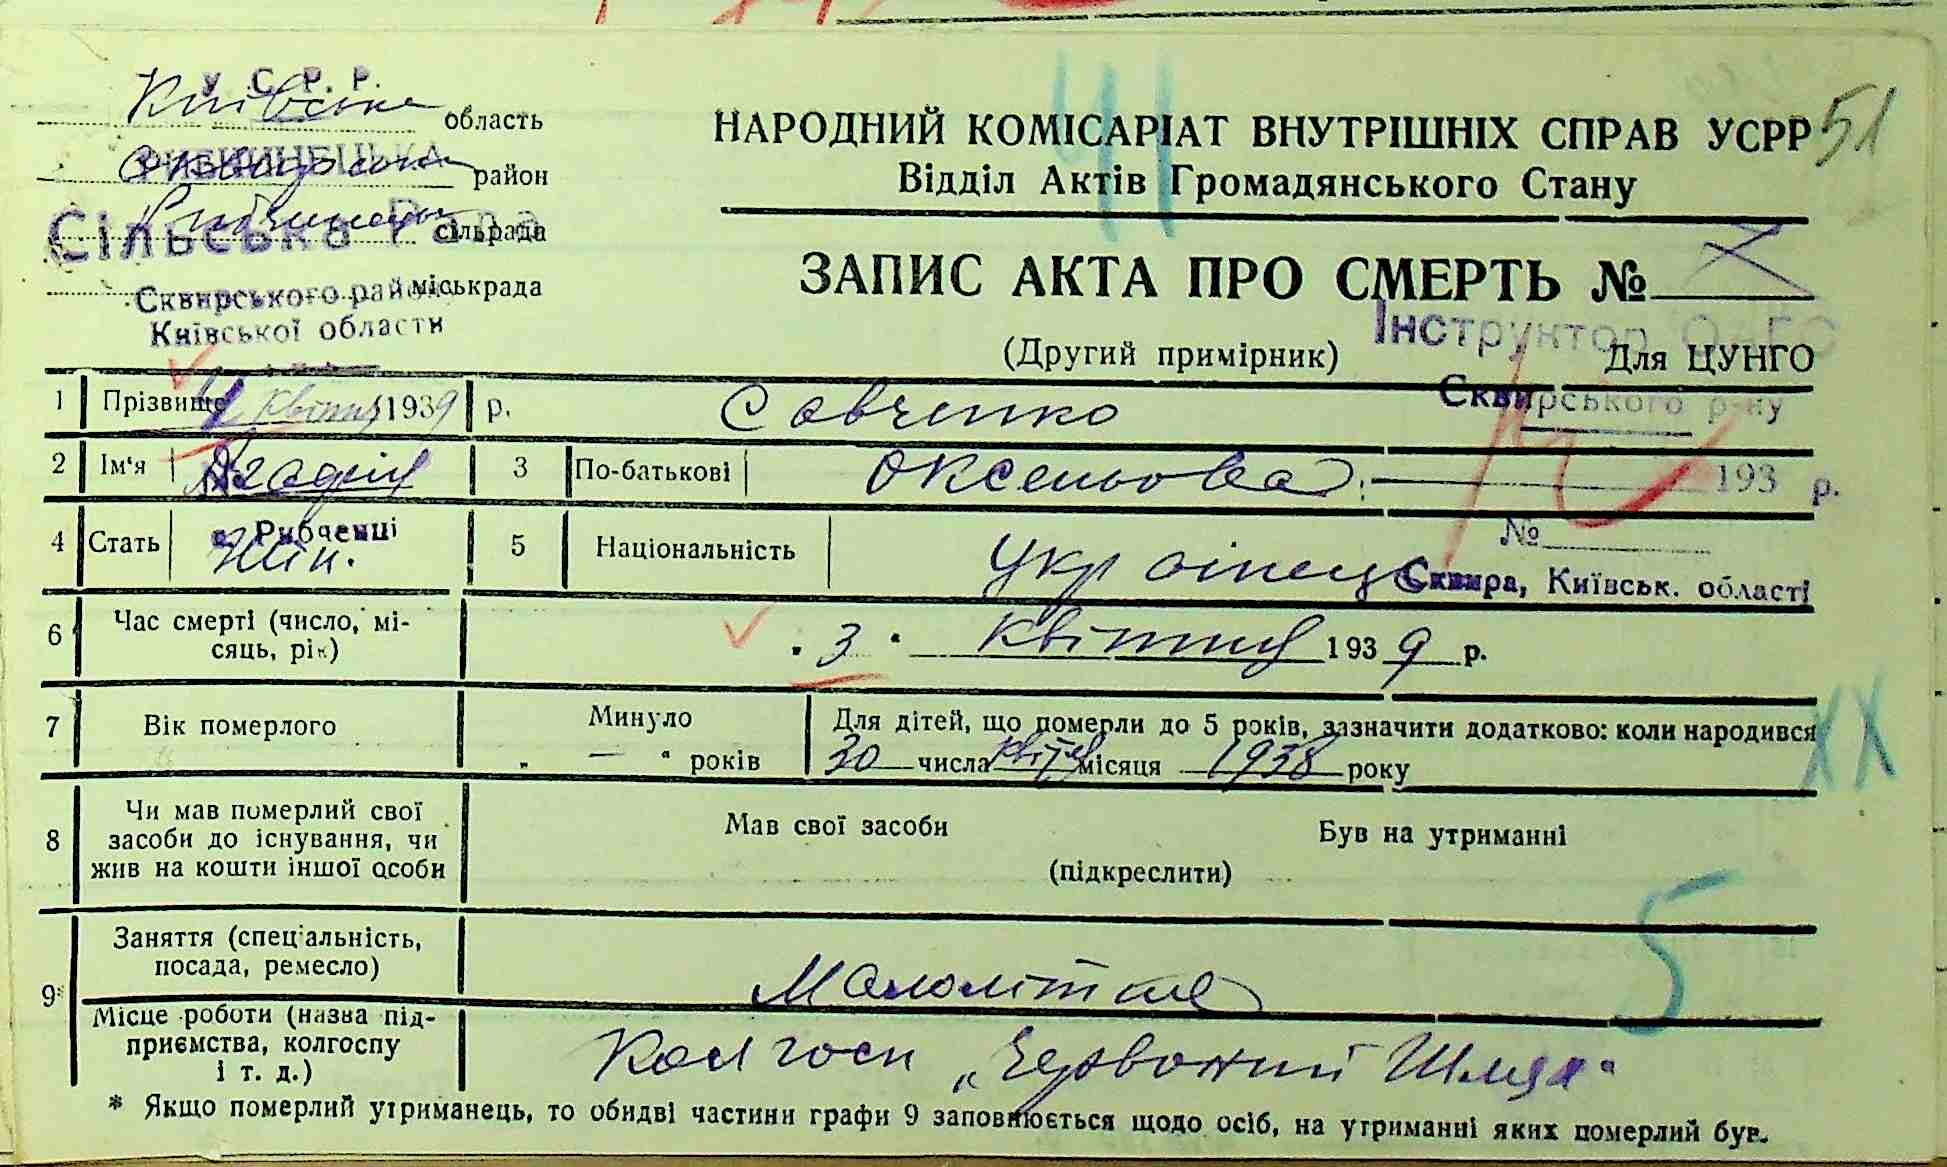 51
У.С.Р.Р.
Київська область
НАРОДНИЙ КОМІСАРІАТ ВНУТРІШНІХ СПРАВ УСРР
41
район
Відділ Актів Громадянського Стану
Сільська Рада
сільрада
міськрада
Сквирського району
Київської области
ЗАПИС АКТА ПРО СМЕРТЬ №
Інструктор
(Другий примірник) Для ЦУНГО
1 Прізвище Савченко
4 квітня 1939 р.
Сквирського р-ну
2 Ім'я 3 По-батькові Оксеньова
193 р.
с. Рибченці
4 Стать Жін. 5 Національність Українец
№
Сквира, Київськ. області
6 Час смерті (число, мі-
сяць, рік) „3" Квітня 1939 р.
7 Вік померлого Минуло
„ — " років
Для дітей, що померли до 5 років, зазначити додатково: коли народився
30 числа квітня місяця 1938 року
XX
8 Чи мав померлий свої
засоби до існування, чи
жив на кошти іншої особи
Мав свої засоби Був на утриманні
(підкреслити)
5
9* Заняття (спеціальність,
посада, ремесло) Малолітня
Місце роботи (назва під-
приємства, колгоспу
і т. д.) Колгосп „Червоний Шлях"
* Якщо померлий утриманець, то обидві частини графи 9 заповнюється щодо осіб, на утриманні яких померлий був.